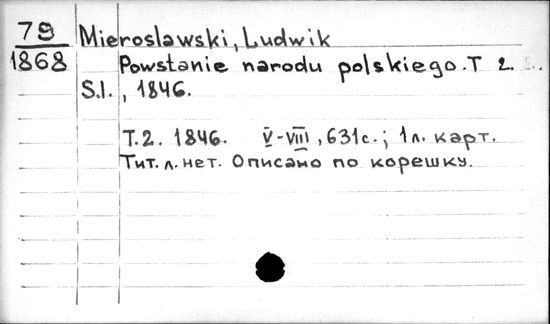 79
1868
Mierosławski, Ludwik
Powstanie narodu polskiego. T 2.
S.l., 1846.
T. 2. 1846. V-VIII, 631 с.; 1 л. карт.
Тит. л. нет. Описано по корешку.